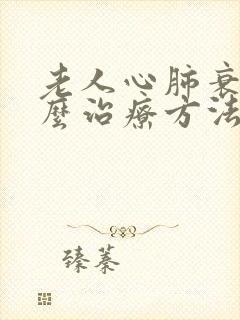 老人心肺衰
麼治療方法
臻蓁